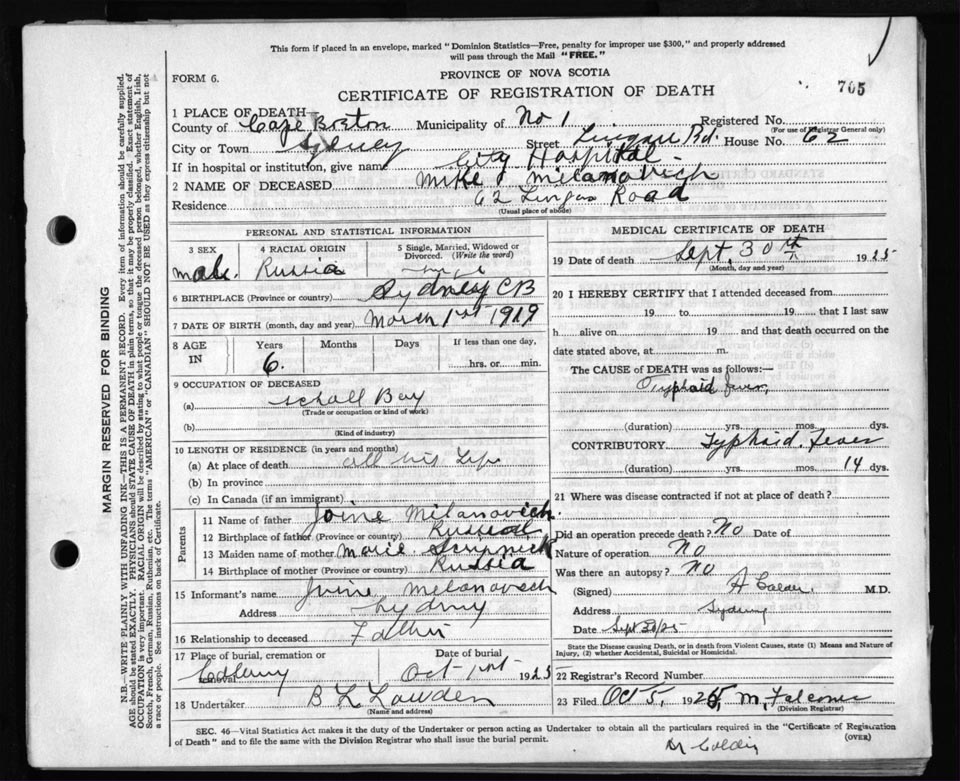 This form if placed in an envelope, marked "Dominion Statistics—Free, penalty for improper use $300," and properly addressed
will pass through the Mail "FREE."
FORM 6.
PROVINCE OF NOVA SCOTIA
705
CERTIFICATE OF REGISTRATION OF DEATH
1 PLACE OF DEATH
County of Cape Breton Municipality of No 1 Registered No.
(For use of Registrar General only)
City or Town Sydney Street Lingan Rd. House No. 62
If in hospital or institution, give name City Hospital
2 NAME OF DECEASED Mike Milanovich
Residence 62 Lingan Road
(Usual place of abode)
PERSONAL AND STATISTICAL INFORMATION
3 SEX 4 RACIAL ORIGIN 5 Single, Married, Widowed or Divorced. (Write the word)
male. Russia
6 BIRTHPLACE (Province or country) Sydney CB
7 DATE OF BIRTH (month, day and year) March 1st 1919
8 AGE IN Years Months Days If less than one day,
6. hrs. or min.
9 OCCUPATION OF DECEASED
(a) School Boy
(Trade or occupation or kind of work)
(b)
(Kind of industry)
10 LENGTH OF RESIDENCE (in years and months)
(a) At place of death all his Life
(b) In province
(c) In Canada (if an immigrant)
Parents
11 Name of father Milanovich.
12 Birthplace of father (Province or country) Russia
13 Maiden name of mother Marie
14 Birthplace of mother (Province or country) Russia
15 Informant's name Milanovich
Address Sydney
16 Relationship to deceased Father
17 Place of burial, cremation or Date of burial
Oct 1st 1925
18 Undertaker B L Lowden
(Name and address)
MEDICAL CERTIFICATE OF DEATH
19 Date of death Sept. 30th 1925
(Month, day and year)
20 I HEREBY CERTIFY that I attended deceased from
19 to 19 that I last saw
h alive on 19 and that death occurred on
date stated above, at m.
The CAUSE of DEATH was as follows:—
Typhoid Fever,
(duration) yrs. mos. dys.
CONTRIBUTORY Typhoid Fever
(duration) yrs. mos. 14 dys.
21 Where was disease contracted if not at place of death?
Did an operation precede death? No Date of
Nature of operation No
Was there an autopsy? No
(Signed) M.D.
Address Sydney
Date Sept 30/25
State the Disease causing Death, or in death from Violent Causes, state (1) Means and Nature of
Injury, (2) whether Accidental, Suicidal or Homicidal.
22 Registrar's Record Number
23 Filed Oct 5, 1925, M. Falconer
(Division Registrar)
SEC. 46—Vital Statistics Act makes it the duty of the Undertaker or person acting as Undertaker to obtain all the particulars required in the "Certificate of Registration
of Death" and to file the same with the Division Registrar who shall issue the burial permit.
(OVER)
MARGIN RESERVED FOR BINDING
N.B.—WRITE PLAINLY WITH UNFADING INK—THIS IS A PERMANENT RECORD. Every item of information should be carefully supplied.
AGE should be stated EXACTLY. PHYSICIANS should STATE CAUSE OF DEATH in plain terms, so that it may be properly classified. Exact statement of
OCCUPATION is very important. RACIAL ORIGIN will be described by stating to what people or tongue the deceased person belonged, whether English, Irish,
Scotch, French, German, Russian, Ruthenian, etc. The terms "AMERICAN" or "CANADIAN" SHOULD NOT BE USED as they express citizenship but not
a race or people. See instructions on back of Certificate.